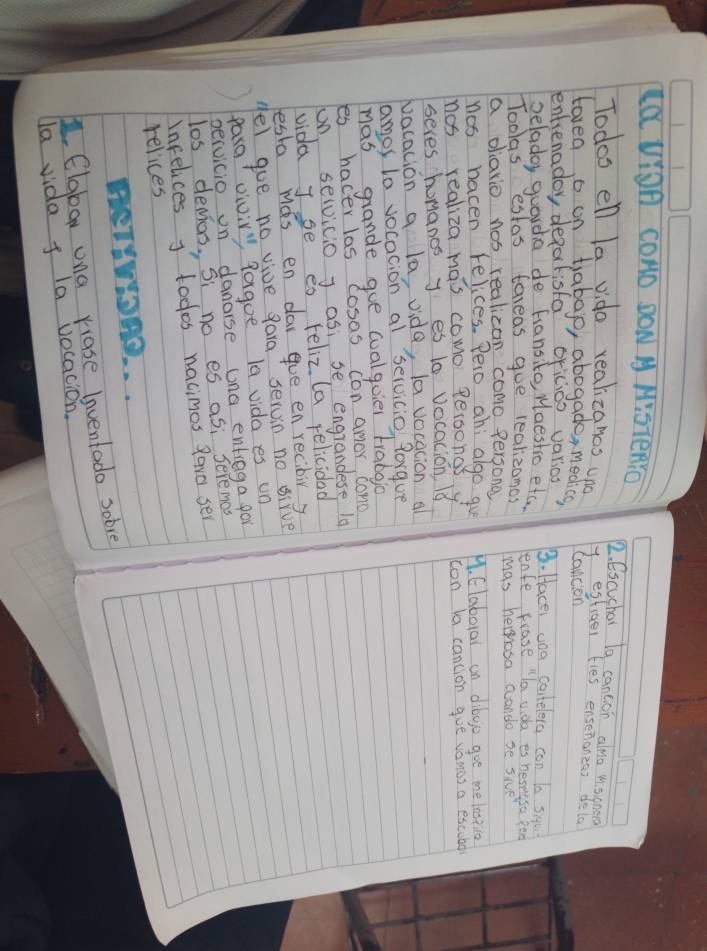 La vida como don y Misterio
Todos en la vida realizamos una
tarea o un trabajo, abogado, medico,
entrenador, deportista oficios varios,
selador, guarda de transito, Maestro etc.
Todas estas tareas que realizamos
a diario nos realizan como persona,
nos hacen felices. Pero ahi algo que
nos realiza más como Personas y
seres humanos y es la vocación, la
vocación a la vida, la vocación al
amor, la vocación al servicio, Porque
mas grande que cualquier trabajo
es hacer las cosas con amor como
un servicio y asi, se engrandese la
vida y se es feliz. la felicidad
esta más en dar que en recibir y
"el que no vive para servir no sirve
para vivir", Porque la vida es un
servicio un donarse una entrega por
los demás, si no es así seremos
Infelices y todos nacimos para ser
felices
ACTIVIDAD...
1. Elabor una frase Inventada sobre
la vida y la vocación.
2. Escuchar la canción alma Misionera
y estraer tres enseñanzas de la
canción
3. Hacer una cartelera con la sigui-
ente frase "la vida es hermosa Pero
mas hermosa cuando se sirve"
4. Elaborar un dibujo que me Inspira
con la canción que vamos a escuchar